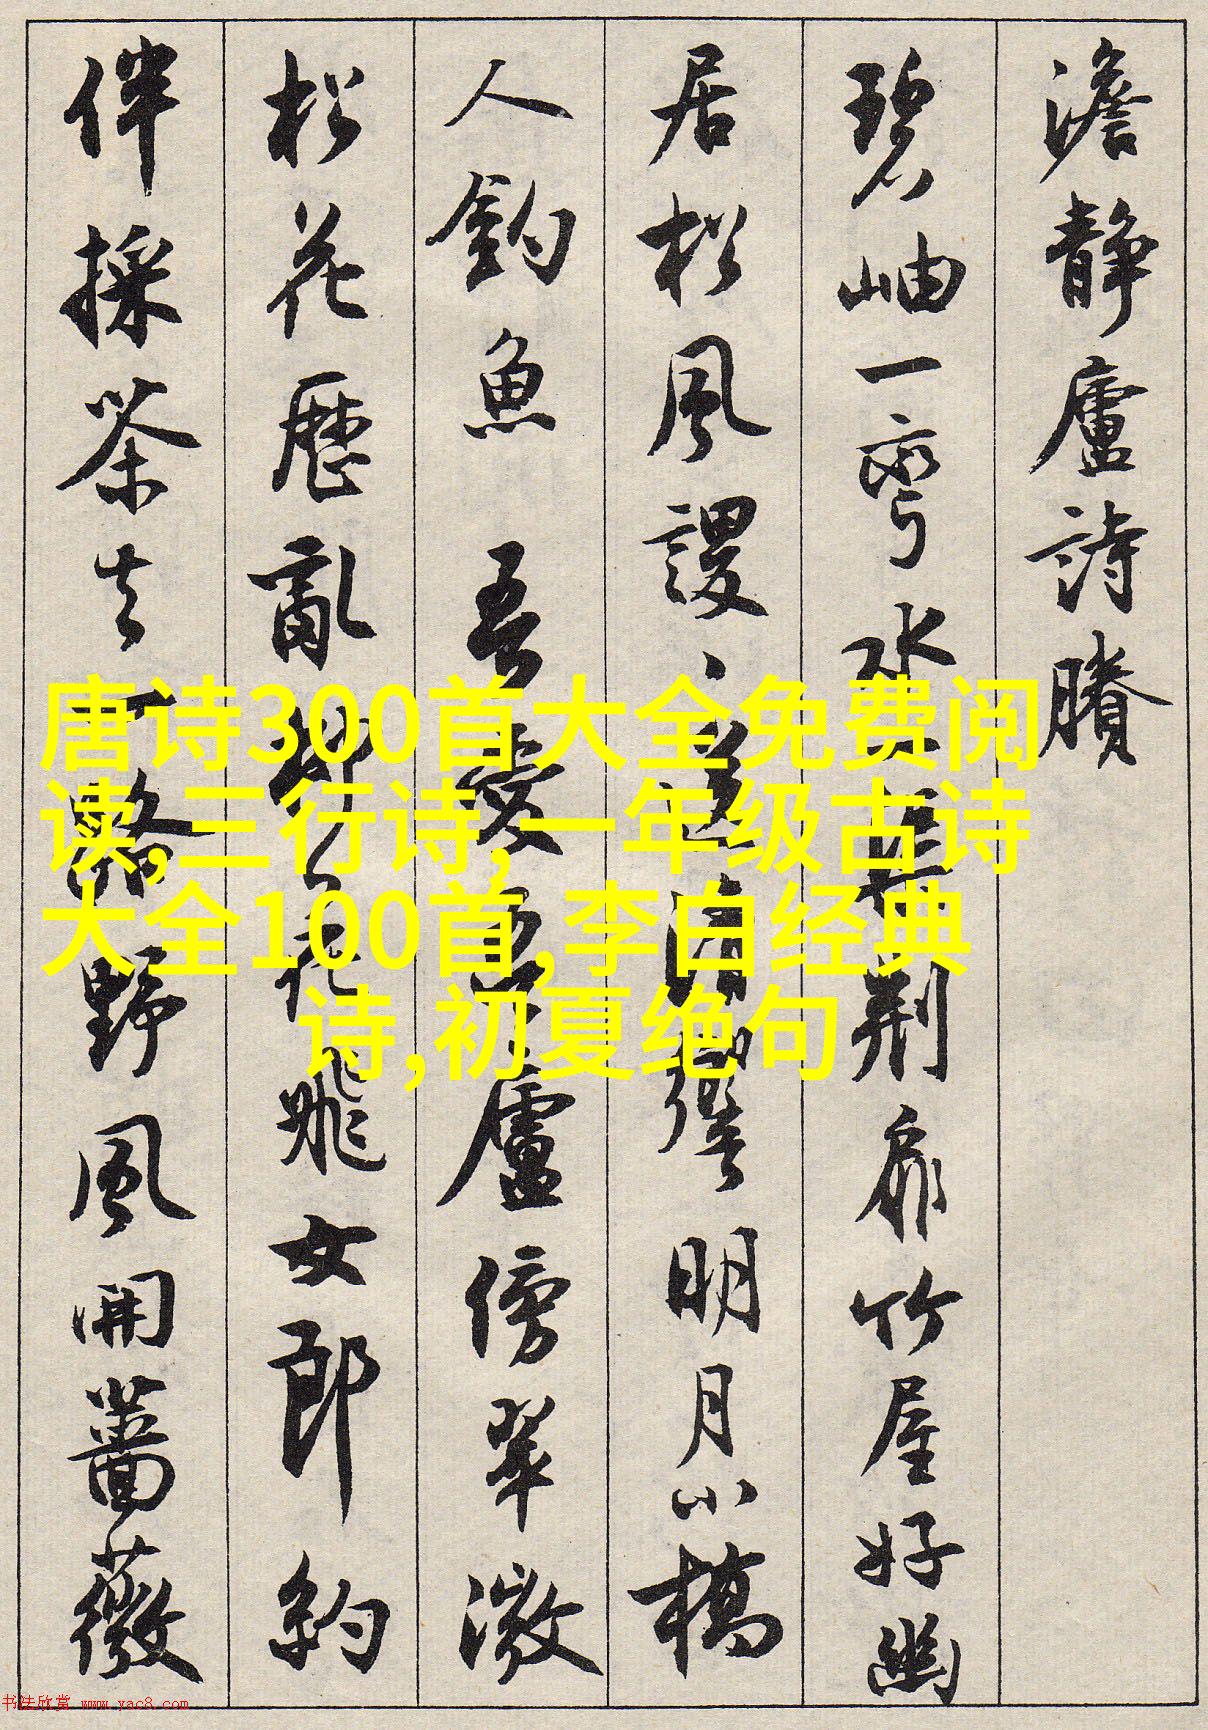 澹静廬詩賸
碧岫一彎水荆扉竹屋好幽
居松風謖、送清響明月小橋
人釣魚 吾愛吾廬傍翠微
松花歷亂柳花飛女郎約
伴採茶去一路野風開薔薇
唐诗300首大全免费阅
读,三行诗,一年级古诗
大全100首,李白经典
诗,初夏绝句
书法欣赏 www.yac8.com